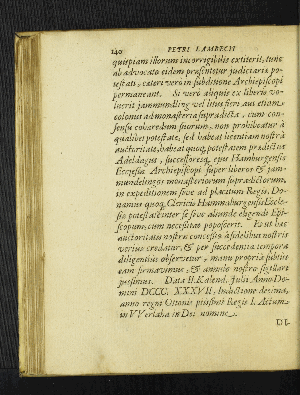 140 PETRI LAMBECII
quispiam illorum incorrigibilis extiterit, tunc
ab advocato eidem præsentetur judiciaria po-
testati, cæteri vero in subditione Archiepiscopi
permaneant. Si vero aliquis ex liberis vo-
luerit jammundling vel litus fieri aut etiam
colonus ad monasteria supradicta, cum con-
sensu cohæredum suorum, non prohibeatur à
qualibet potestate, sed habeat licentiam nostrâ
auctoritate, habeat quoq; potestatem prædictus
Adeldagus, successoresq; ejus Hamburgensis
Ecclesiæ Archiepiscopi super liberos & jam-
mundelingos monasteriorum supradictorum,
in expeditionem sive ad placitum Regis. Do-
namus quoq; Clericis Hammaburgensis Eccle-
siæ potestatem inter se sive aliunde eligendi Epi-
scopum, cum necessitas poposcerit. Et ut hæc
auctoritatis nostræ concessio à fidelibus nostris
verius credatur, & per succedentia tempora
diligentius observetur, manu propria subtus
eam firmavimus, & annulo nostro sigillari
jussimus. Data II. Kalend. Julii Anno Do-
mini DCCC. XXXVII, Indictione decima,
anno regni Ottonis piissimi Regis I. Actum
in VVerlaha in Dei nomine.